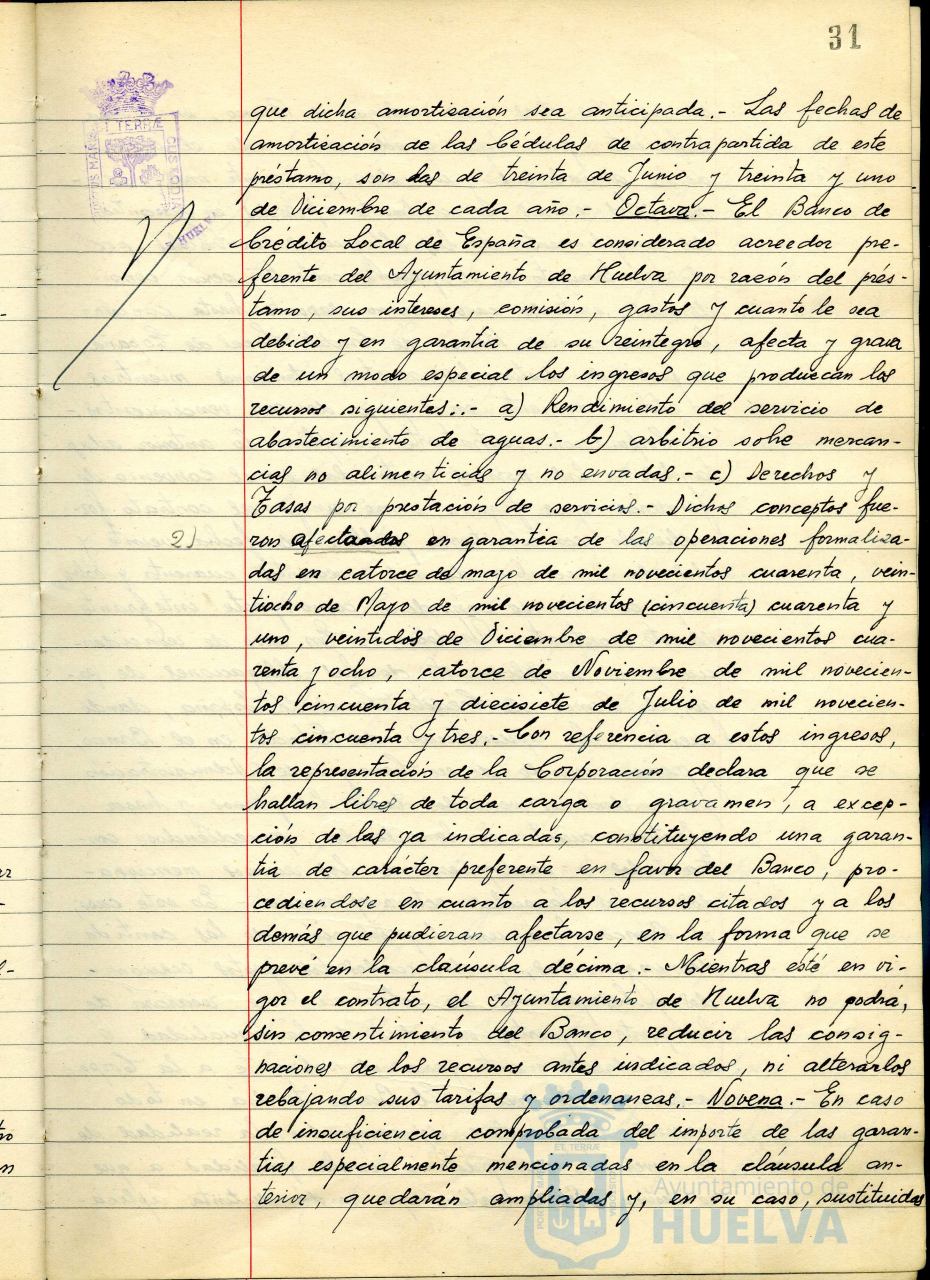 31
que dicha amortisación sea anticipada.- Las fechas de
amortización de las Cédulas de contrapartida de este
préstamo, son las de treinta de Junio y treinta y uno
de Diciembre de cada año.- Octava.- El Banco de
Crédito Local de España es considerado acreedor pre-
ferente del Ayuntamiento de Huelva por razón del prés-
tamo, sus intereses, comisión, gastos y cuanto le sea
debido y en garantia de su reintegro, afecta y grava
de un modo especial los ingresos que produzcan los
recursos siguientes:.- a) Rendimiento del servicio de
abastecimiento de aguas.- b) arbitrio sobre mercan-
cias no alimenticias y no envadas.- c) Derechos y
Tasas por prestación de servicios.- Dichos conceptos fue-
2)
ron afectados en garantia de las operaciones formaliza-
das en catorce de mayo de mil novecientos cuarenta, vein-
tiocho de Mayo de mil novecientos (cincuenta) cuarenta y
uno, veintidos de Diciembre de mil novecientos cua-
renta y ocho, catorce de Noviembre de mil novecien-
tos cincuenta y diecisiete de Julio de mil novecien-
tos cincuenta y tres.- Con referencia a estos ingresos,
la representación de la Corporación declara que se
hallan libres de toda carga o gravamen, a excep-
ción de las ya indicadas, constituyendo una garan-
tia de carácter preferente en favor del Banco, pro-
cediendose en cuanto a los recursos citados y a los
demás que pudieran afectarse, en la forma que se
prevé en la claúsula décima.- Mientras esté en vi-
gor el contrato, el Ayuntamiento de Huelva no podrá,
sin consentimiento del Banco, reducir las consig-
naciones de los recursos antes indicados, ni alterarlos
rebajando sus tarifas y ordenanzas.- Novena.- En caso
de insuficiencia comprobada del importe de las garan-
tias especialmente mencionadas en la cláusula an-
terior, quedarán ampliadas y, en su caso, sustituidas
Ayuntamiento de
HUELVA